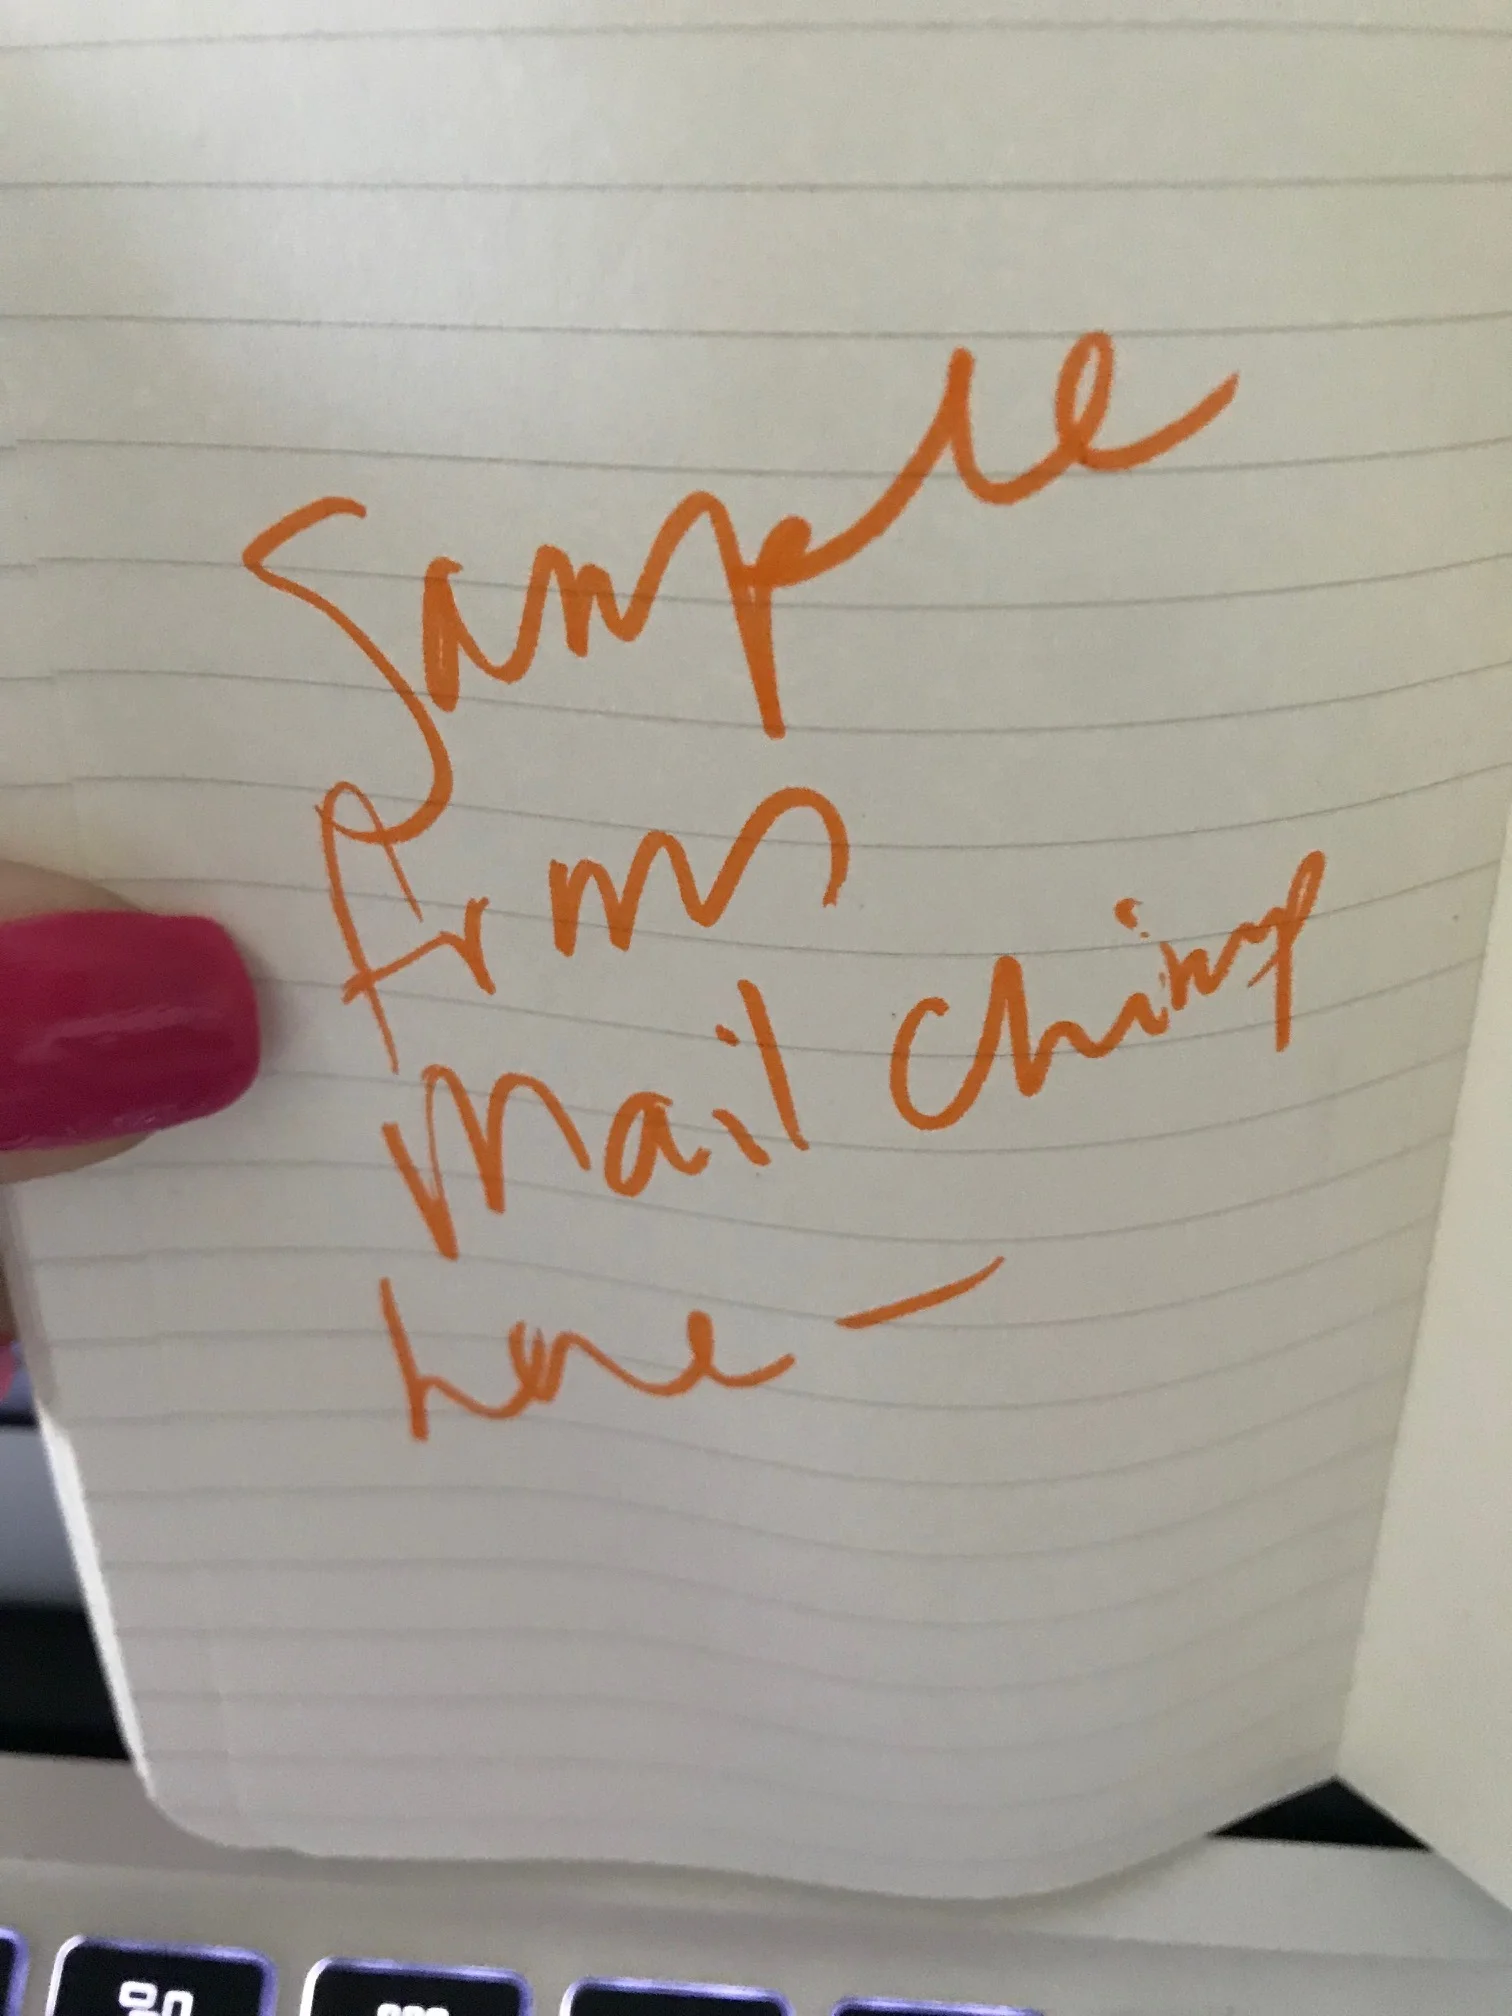 Sample
from
Mail Chimp
here —